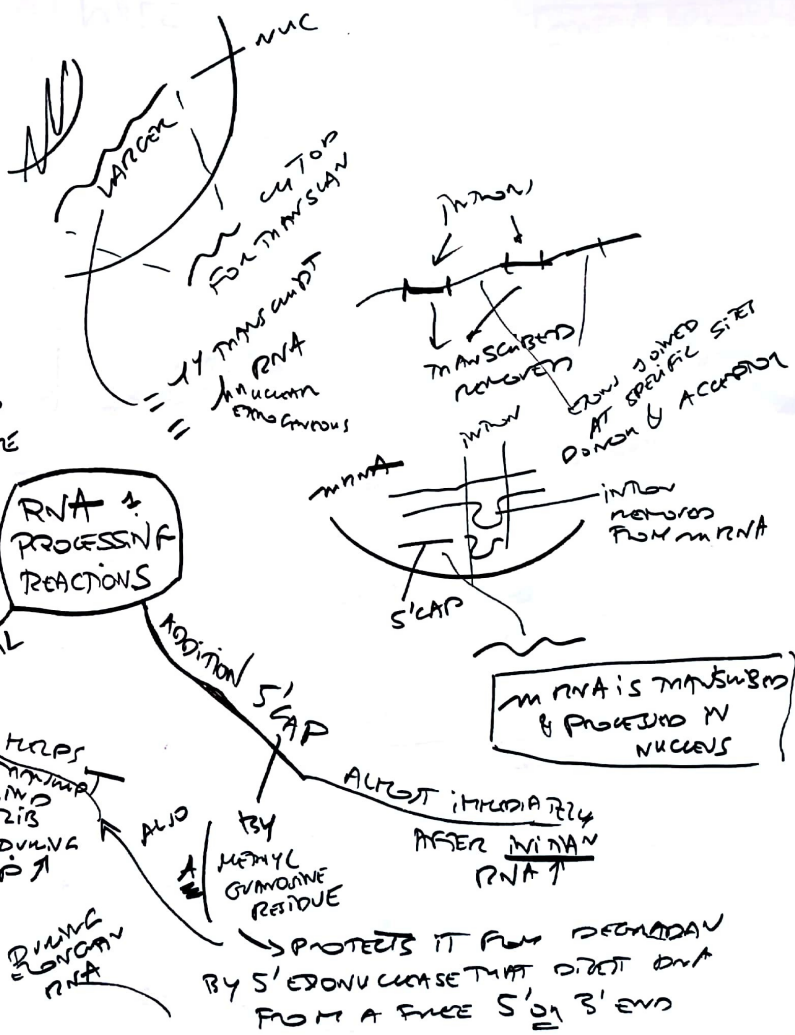 NUC
LARGER
CYTOP
FOR TRANSLAN
1Y TRANSCRIPT
RNA
NUCLEAR
INTRONS
TRANSCRIBED
REMOVED
EXONS JOINED
AT SPECIFIC SITES
DONOR & ACCEPTOR
INTRON
mRNA
INTRON
REMOVED
FROM mRNA
5'CAP
RNA
PROCESSING
REACTIONS
mRNA IS TRANSCRIBED
& PROCESSED IN
NUCLEUS
ADDITION 5'
CAP
ALMOST IMMEDIATELY
AFTER INITIAN
RNA ↑
HELPS
RIB
DURING
ALSO
BY
METHYL
GUANOSINE
RESIDUE
A
DURING
ELONGAN
RNA
→ PROTECTS IT FROM DEGRADAN
BY 5' EXONUCLEASE THAT DIGEST DNA
FROM A FREE 5' OR 3' END